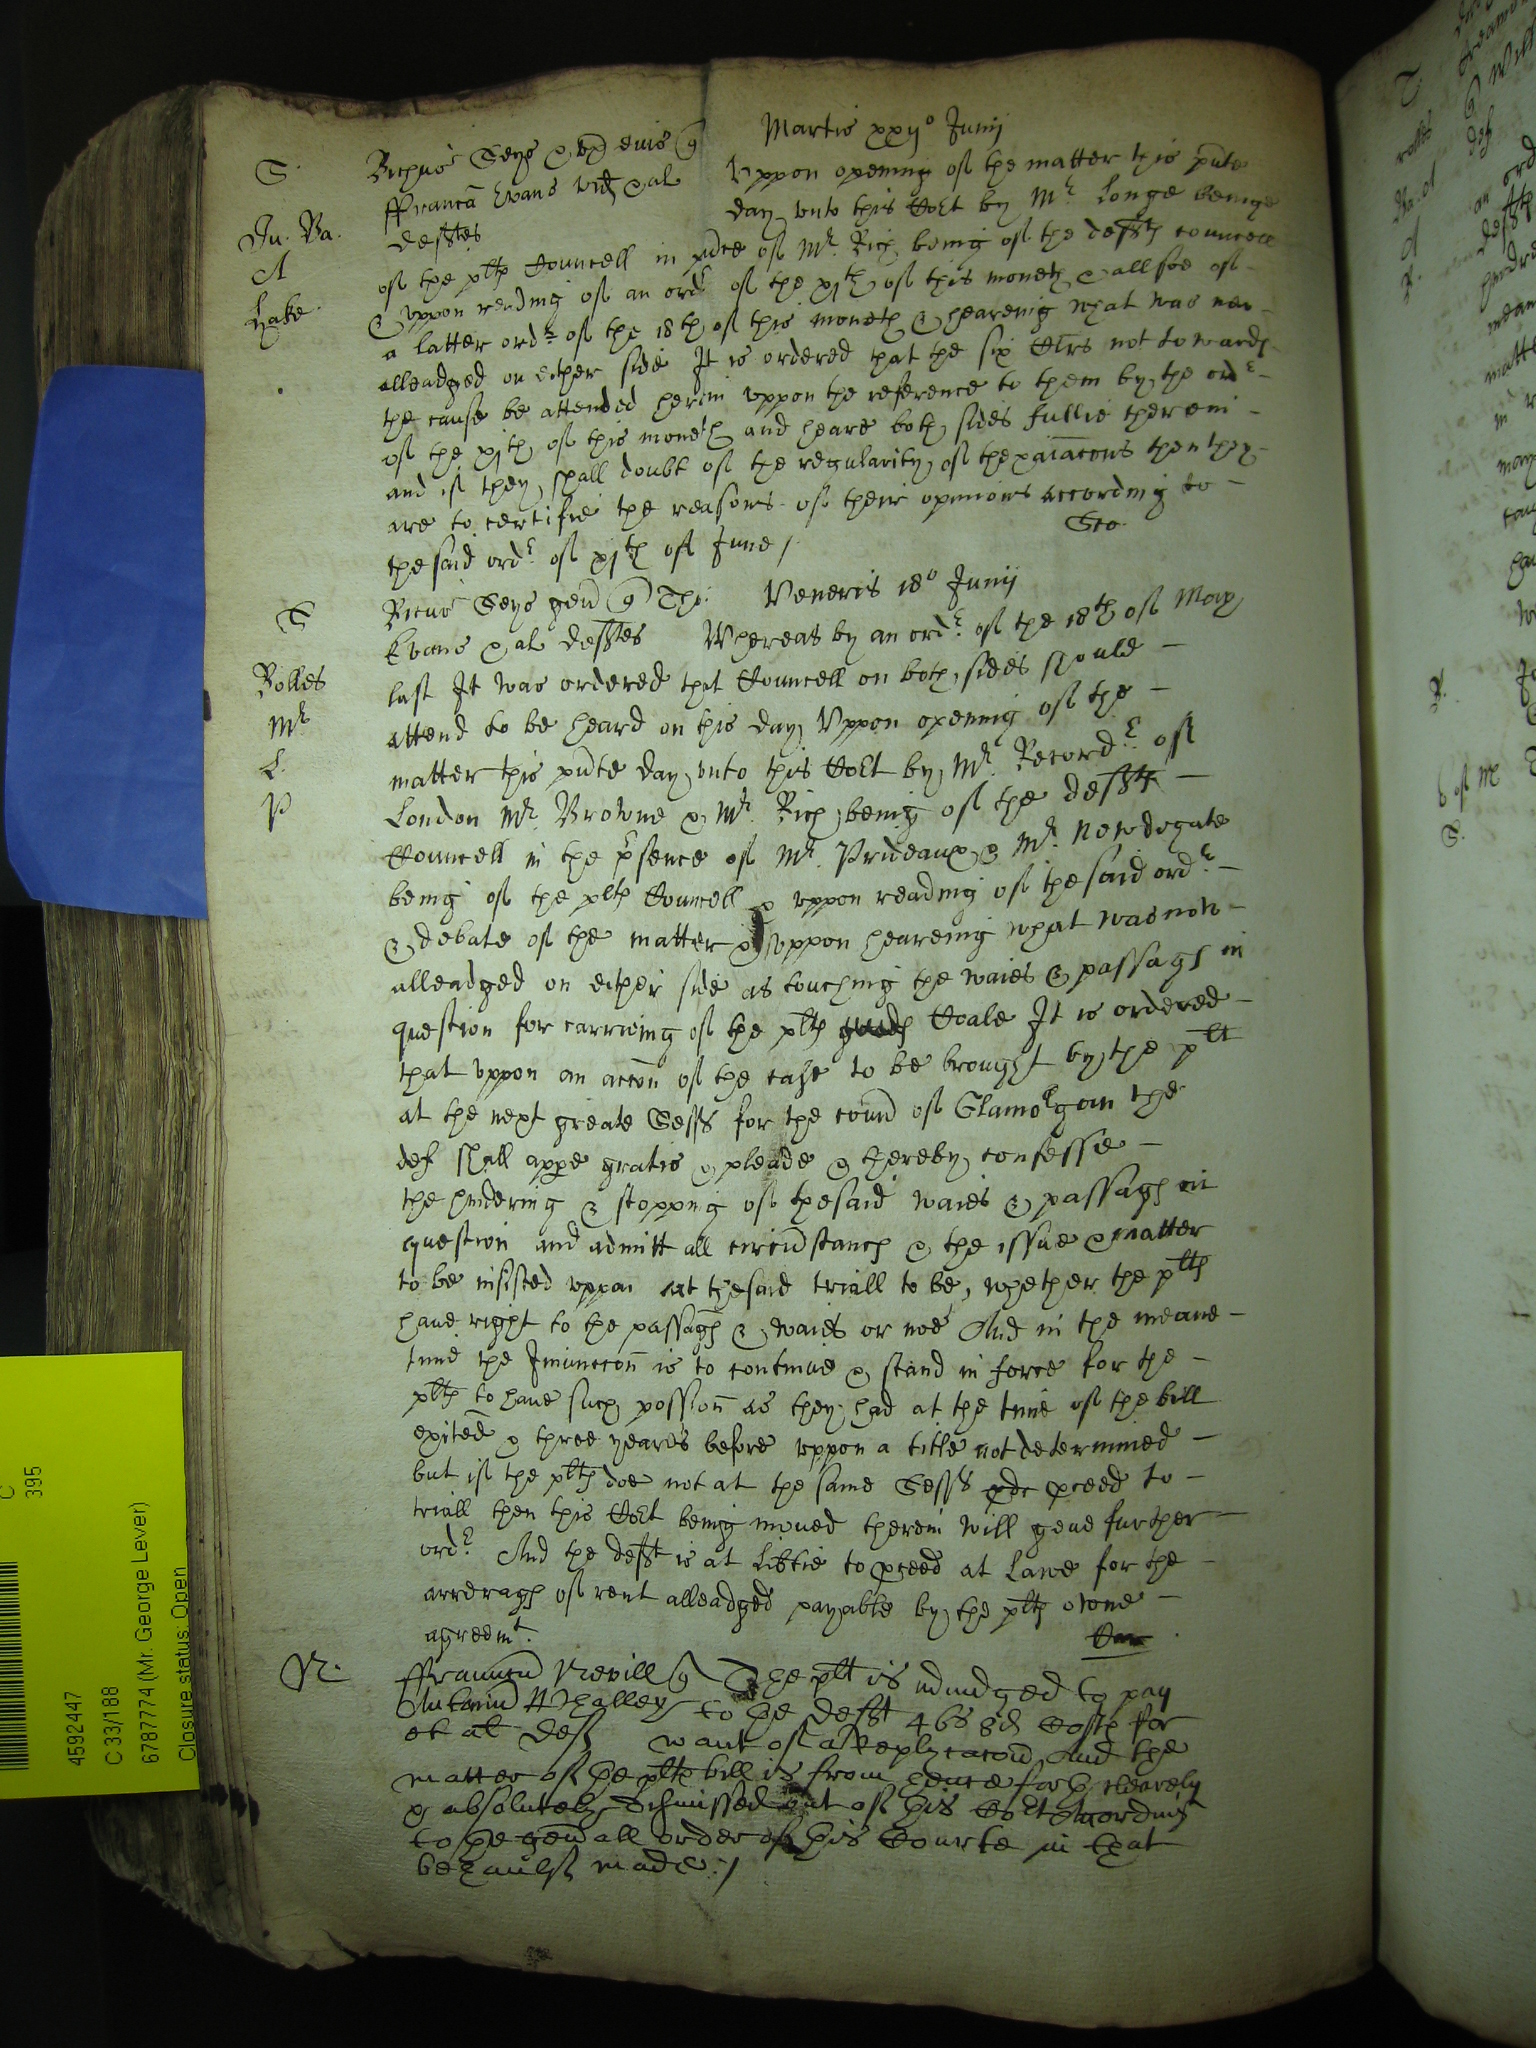 Martis xxijo Junij
S Richus Seys & ux eius q
ffrancu Evans vid & al
deftes
Vppon opening of the matter this pnte
day vnto this Cort by Mr Longe beinge
Ju. Ba.
A
Lake
of the plts Councell in pnce of Mr Rich being of the defts councell
& vppon reading of an ordr of the xjth of this moneth & allsoe of
a latter ordr of the 18th of this moneth & heareing what was now
alleadged on either side It is ordered that the six Clrs not towards
the cause be attended herein vppon the reference to them by the ordr
of the xjth of this moneth and heare both sides fullie therein
and if they shall doubt of the regularity of the then they
are to certifie the reasons of their opinions according to
the said ordr of xjth of June / Sco
S Ricus Seys gen q Tho: Veneris 18o Junij
Evans & al deftes Whereas by an ordr of the 18th of May
Rolles
Mr
L
P
last It was ordered that Councell on both sides should
attend to be heard on this day Vppon opening of the
matter this pnte day vnto this Cort by Mr Recordr of
London Mr Browne & Mr Rich being of the defts
Councell in the psence of Mr Prideaux & Mr Newdegate
being of the plts Councell & vppon reading of the said ordr
& debate of the matter & vppon heareing what was now
alleadged on either side as touching the waies & passags in
question for carrieing of the plts goods Coale It is ordered
that vppon an accon of the case to be brought by the plt
at the next greate Sess for the coun of Glamorgan the
def shall appe gratis & pleade & thereby confesse
the hindering & stopping of the said waies & passags in
question and admitt all circumstancs & the issue & matter
to be insisted vppon at the said triall to be, whether the plts
haue right to the passags & waies or noe And in the meane
time the Iniunccon is to continue & stand in force for the
plts to haue such possion as they had at the time of the bill
exited & three yeares before vppon a title not determined
but if the plts doe not at the same Sess pceed to
triall then this Cort being moued therein will geue further
ordr And the deft is at libtie to pceed at Lawe for the
arrerags of rent alleadged payable by the plts owne
agreemt.
N. ffrancu Nevill q The plt is adiudged to pay
Antoniu Whalley to the deft 46s 8d Costs for
et al def want of a Replycacon And the
matter of the plts bill is from hence forth clearely
& absolutely dismissed out of this Cort according
to the genall order of this Courte in that
behaulf made :/
4592447
C 33/188
6787774 (Mr. George Lever)
Closure status: Open
C
395